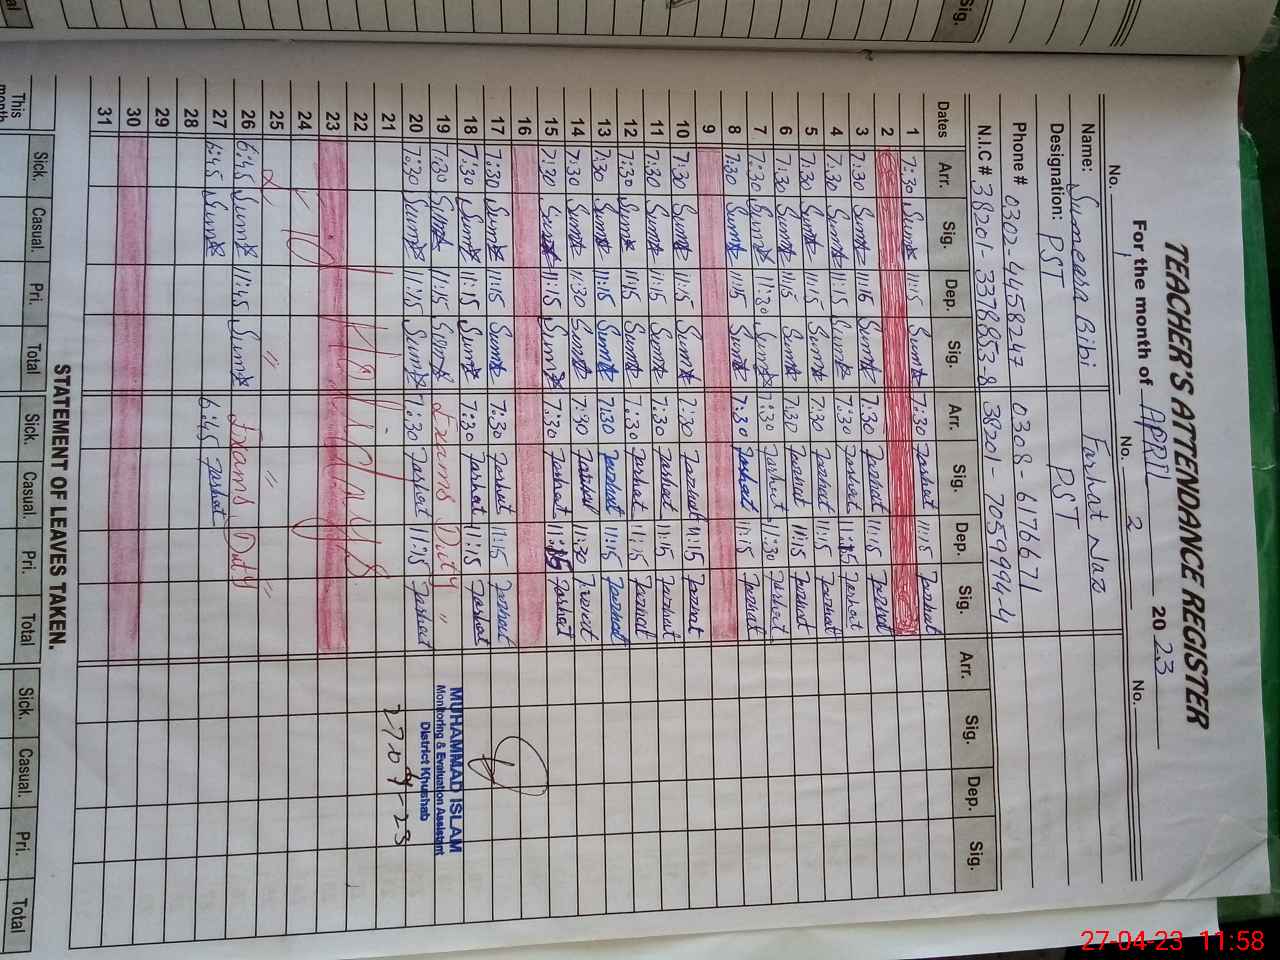 TEACHER'S ATTENDANCE REGISTER
For the month of APRIL 2023
No. 1 No. 2 No.
Name: Sumeara Bibi Farhat Naz
Designation: PST PST
Phone # 0302-4458247 0308-6176671
N.I.C # 38201-3378853-8 38201-7059994-4
Dates Arr. Sig. Dep. Sig. Arr. Sig. Dep. Sig. Arr. Sig. Dep. Sig.
1 7:30 Sum 11:15 Sum 7:30 Farhat 11:15 Farhat
2
3 7:30 Sum 11:15 Sum 7:30 Farhat 11:15 Farhat
4 7:30 Sum 11:15 Sum 7:30 Farhat 11:15 Farhat
5 7:30 Sum 11:15 Sum 7:30 Farhat 11:15 Farhat
6 7:30 Sum 11:15 Sum 7:30 Farhat 11:15 Farhat
7 7:30 Sum 11:30 Sum 7:30 Farhat 11:30 Farhat
8 7:30 Sum 11:15 Sum 7:30 Farhat 11:15 Farhat
9
10 7:30 Sum 11:15 Sum 7:30 Farhat 11:15 Farhat
11 7:30 Sum 11:15 Sum 7:30 Farhat 11:15 Farhat
12 7:30 Sum 11:15 Sum 7:30 Farhat 11:15 Farhat
13 7:30 Sum 11:15 Sum 7:30 Farhat 11:15 Farhat
14 7:30 Sum 11:30 Sum 7:30 Farhat 11:30 Farhat
15 7:30 Sum 11:15 Sum 7:30 Farhat 11:15 Farhat
16
17 7:30 Sum 11:15 Sum 7:30 Farhat 11:15 Farhat
18 7:30 Sum 11:15 Sum 7:30 Farhat 11:15 Farhat
19 7:30 Sum 11:15 Sum Exams Duty "
20 7:30 Sum 11:15 Sum 7:30 Farhat 11:15 Farhat
21
22
23
24
25 " " "
26 6:45 Sum 11:45 Sum Exams Duty
27 6:45 Sum 6:45 Farhat
28
29
30
31
MUHAMMAD ISLAM
Monitoring & Evaluation Assistant
District Khushab
27-04-23
STATEMENT OF LEAVES TAKEN.
Sick. Casual. Pri. Total Sick. Casual. Pri. Total Sick. Casual. Pri. Total
This month
Sig.
27-04-23 11:58